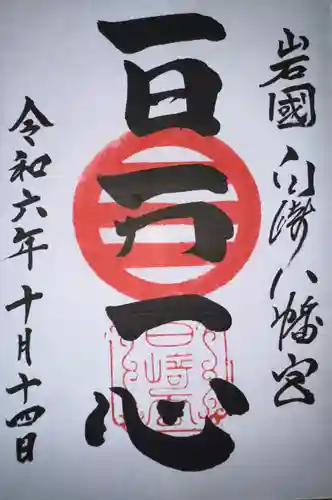 岩國白崎八幡宮
一日一力一心
令和六年十月十四日